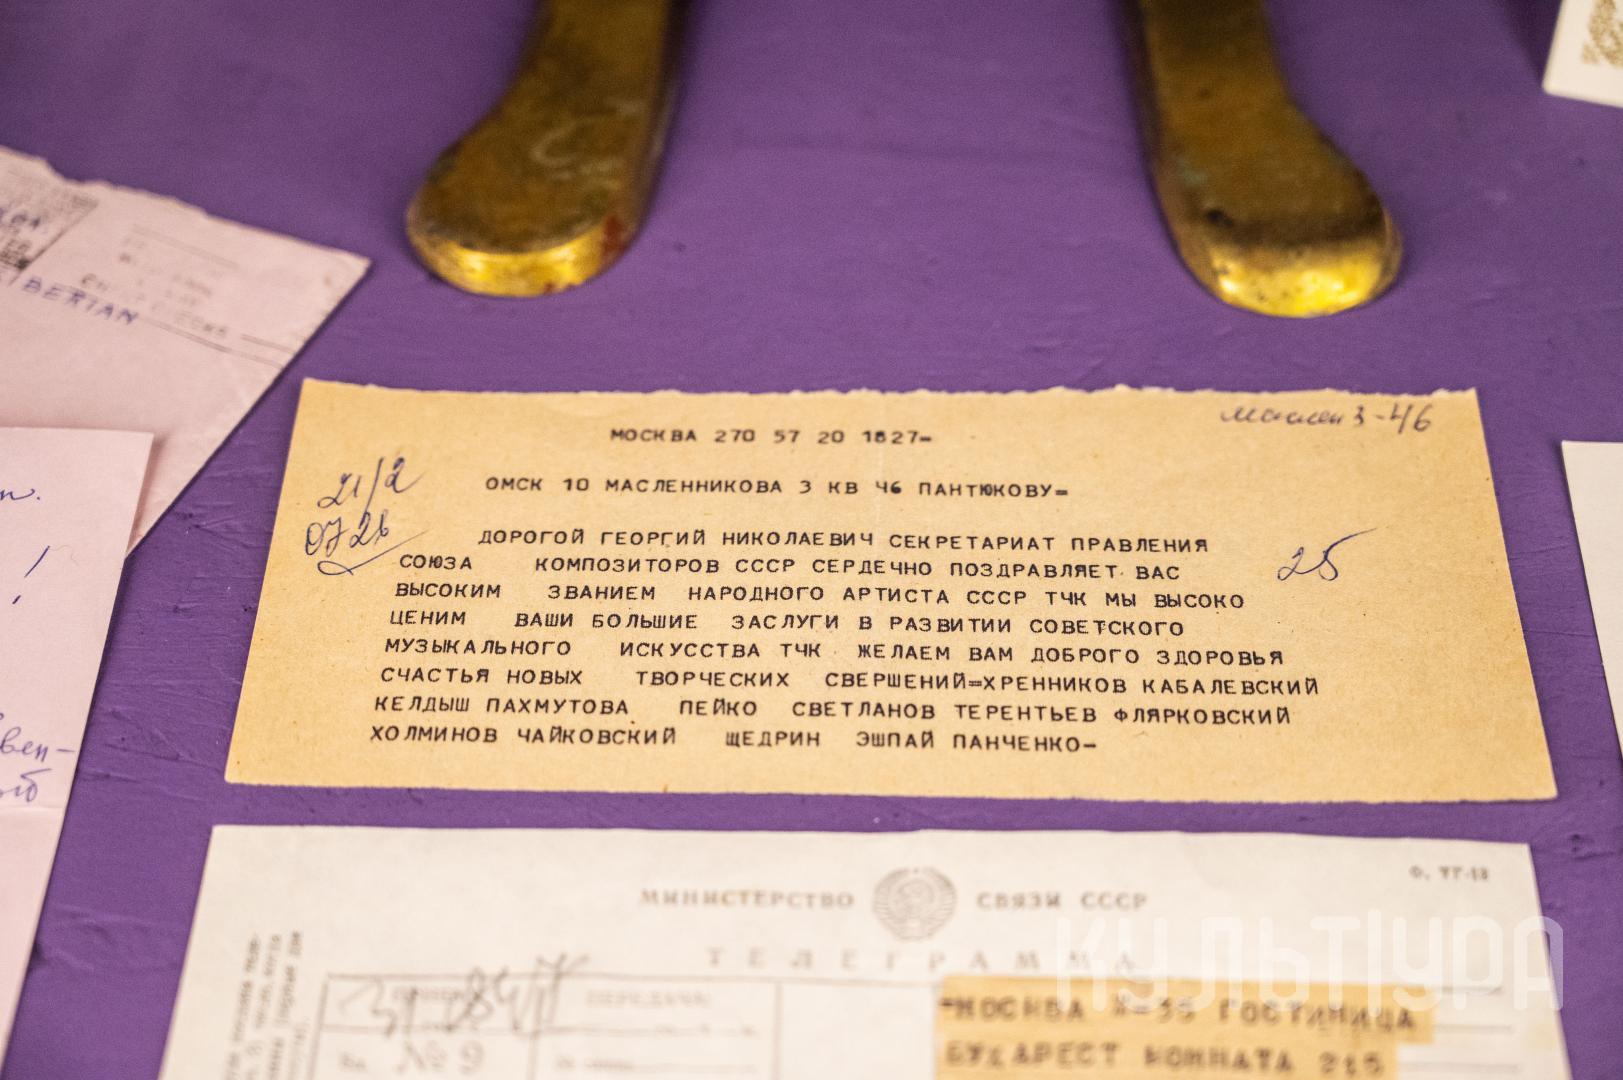 BERIAN
Маслен 3-46
МОСКВА 270 57 20 1827=
21/2
ОМСК 10 МАСЛЕННИКОВА 3 КВ 46 ПАНТЮКОВУ=
ДОРОГОЙ ГЕОРГИЙ НИКОЛАЕВИЧ СЕКРЕТАРИАТ ПРАВЛЕНИЯ
25
СОЮЗА КОМПОЗИТОРОВ СССР СЕРДЕЧНО ПОЗДРАВЛЯЕТ ВАС
ВЫСОКИМ ЗВАНИЕМ НАРОДНОГО АРТИСТА СССР ТЧК МЫ ВЫСОКО
ЦЕНИМ ВАШИ БОЛЬШИЕ ЗАСЛУГИ В РАЗВИТИИ СОВЕТСКОГО
МУЗЫКАЛЬНОГО ИСКУССТВА ТЧК ЖЕЛАЕМ ВАМ ДОБРОГО ЗДОРОВЬЯ
СЧАСТЬЯ НОВЫХ ТВОРЧЕСКИХ СВЕРШЕНИЙ=ХРЕННИКОВ КАБАЛЕВСКИЙ
КЕЛДЫШ ПАХМУТОВА ПЕЙКО СВЕТЛАНОВ ТЕРЕНТЬЕВ ФЛЯРКОВСКИЙ
ХОЛМИНОВ ЧАЙКОВСКИЙ ЩЕДРИН ЭШПАЙ ПАНЧЕНКО-
МИНИСТЕРСТВО СВЯЗИ СССР
ТЕЛЕГРАММА
ПЕРЕДАЧА:
№ 9
МОСКВА ГОСТИНИЦА
БУХАРЕСТ КОМНАТА
КУЛЬТУРА